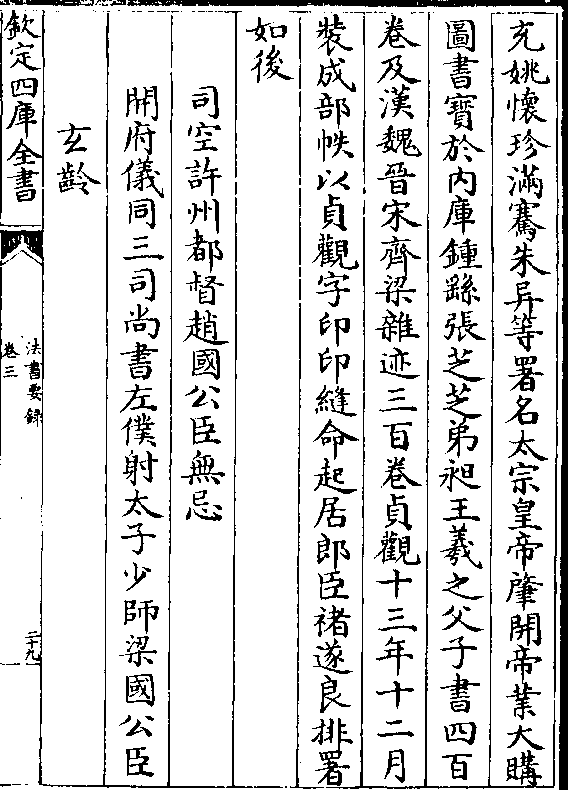 充姚懷珍滿騫朱异等署名太宗皇帝肇開帝業大購
圖書寶於内庫鍾繇張芝芝弟昶王羲之父子書四百
卷及漢魏晉宋齊梁雜迹三百卷貞觀十三年十二月
裝成部帙以貞觀字印印縫命起居郎臣禇遂良排署
如後
司空許州都督趙國公臣無忌
開府儀同三司尚書左僕射太子少師梁國公臣
玄齡
欽定四庫全書
法書要錄
卷三
二十九